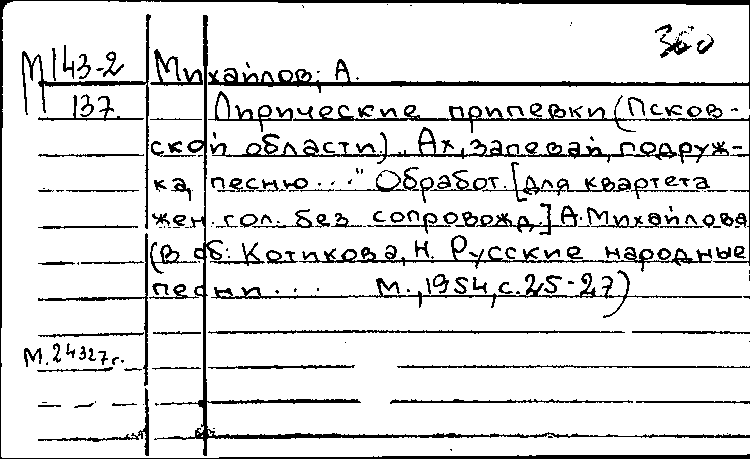 360
М143-2 Михайлов, А.
137. Лирические припевки (Псков-
ской области) „Ах, запевай, подруж-
ка, песню..." Обработ. [для квартета
жен. гол. без сопровожд.] А. Михайлова
(в сб: Котикова, Н. Русские народные
песни... М., 1954, с. 25-27)
М. 24327г.